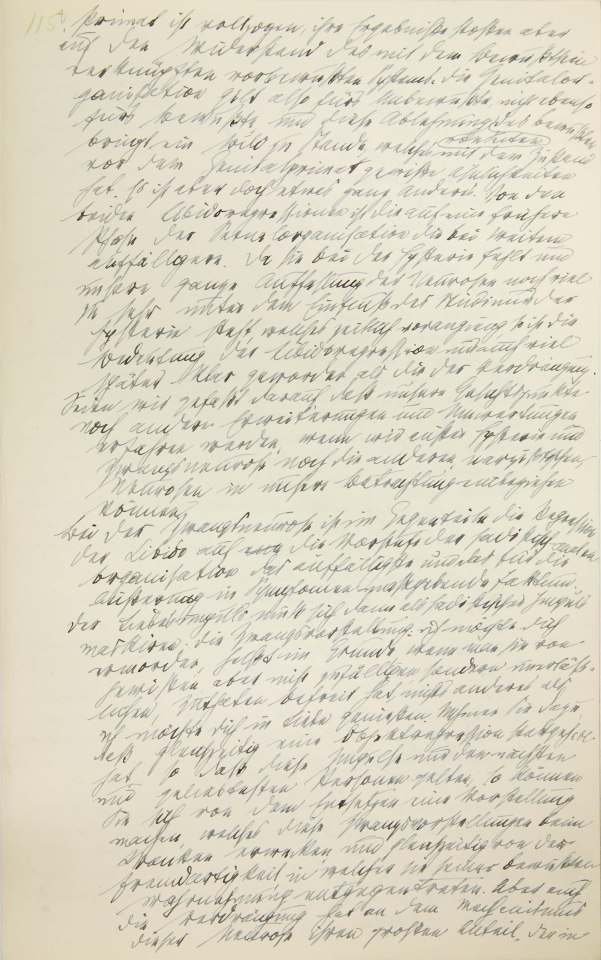 115.
Primat ist vollzogen, ihre Ergebnisse stoßen aber
auf den Widerstand des mit dem Bewußtsein
verknüpften vorbewußten Systems. Die Genitalor-
ganisation gilt also fürs Unbewußte, nicht ebenso
fürs Bewußte und diese Ablehnung des bewußten
bringt ein Bild zu Stande welches mit dem Zustand
vor dem Genitalprimat gewisse Ähnlichkeiten
hat. Es ist aber doch etwas ganz anderes. Von den
beiden Libidoregressionen ist die auf eine frühere
Phase der Sexualorganisation die bei Weitem
auffälligere. Da sie bei der Hysterie fehlt und
unsere ganze Auffassung der Neurosen noch viel
zu sehr unter dem Einfluß des Studiums der
Hysterie steht welches zeitlich voranging so ist die
Bedeutung der Libidoregression uns auch viel
später klar geworden als die der Verdrängung.
Seien wir gefaßt darauf daß unsere Gesichtspunkte
noch andere Erweiterungen und Umwertungen
erfahren werden, wenn wir außer Hysterie und
Zwangsneurose noch die anderen narzißtischen
Neurosen in unsere Betrachtung einbeziehen
können.
Bei der Zwangsneurose ist im Gegenteile die Regression
der Libido auf die Vorstufe der sadistisch analen
Organisation das auffälligste und das für die
Äußerung in Symptomen maßgebende Faktum.
Der Liebesimpuls muß sich dann als sadistischer Impuls
maskiren. Die Zwangsvorstellung: ich möchte dich
ermorden, heißt im Grunde wenn man sie von
gewissen aber nicht zufälligen sondern unerläß-
lichen Zuthaten befreit hat, nichts anderes als
ich möchte dich in Liebe genießen. Nehmen Sie dazu
daß gleichzeitig eine Objektregression stattgefunden
hat, so daß diese Impulse nur den nächsten
und geliebtesten Personen gelten, so können
Sie sich von dem Entsetzen eine Vorstellung
machen welches diese Zwangsvorstellungen beim
Kranken erwecken und gleichzeitig von der
Fremdartigkeit in welcher sie seiner bewußten
Wahrnehmung entgegentreten. Aber auch
die Verdrängung hat an dem Mechanismus
dieser Neurose ihren großen Anteil, der in